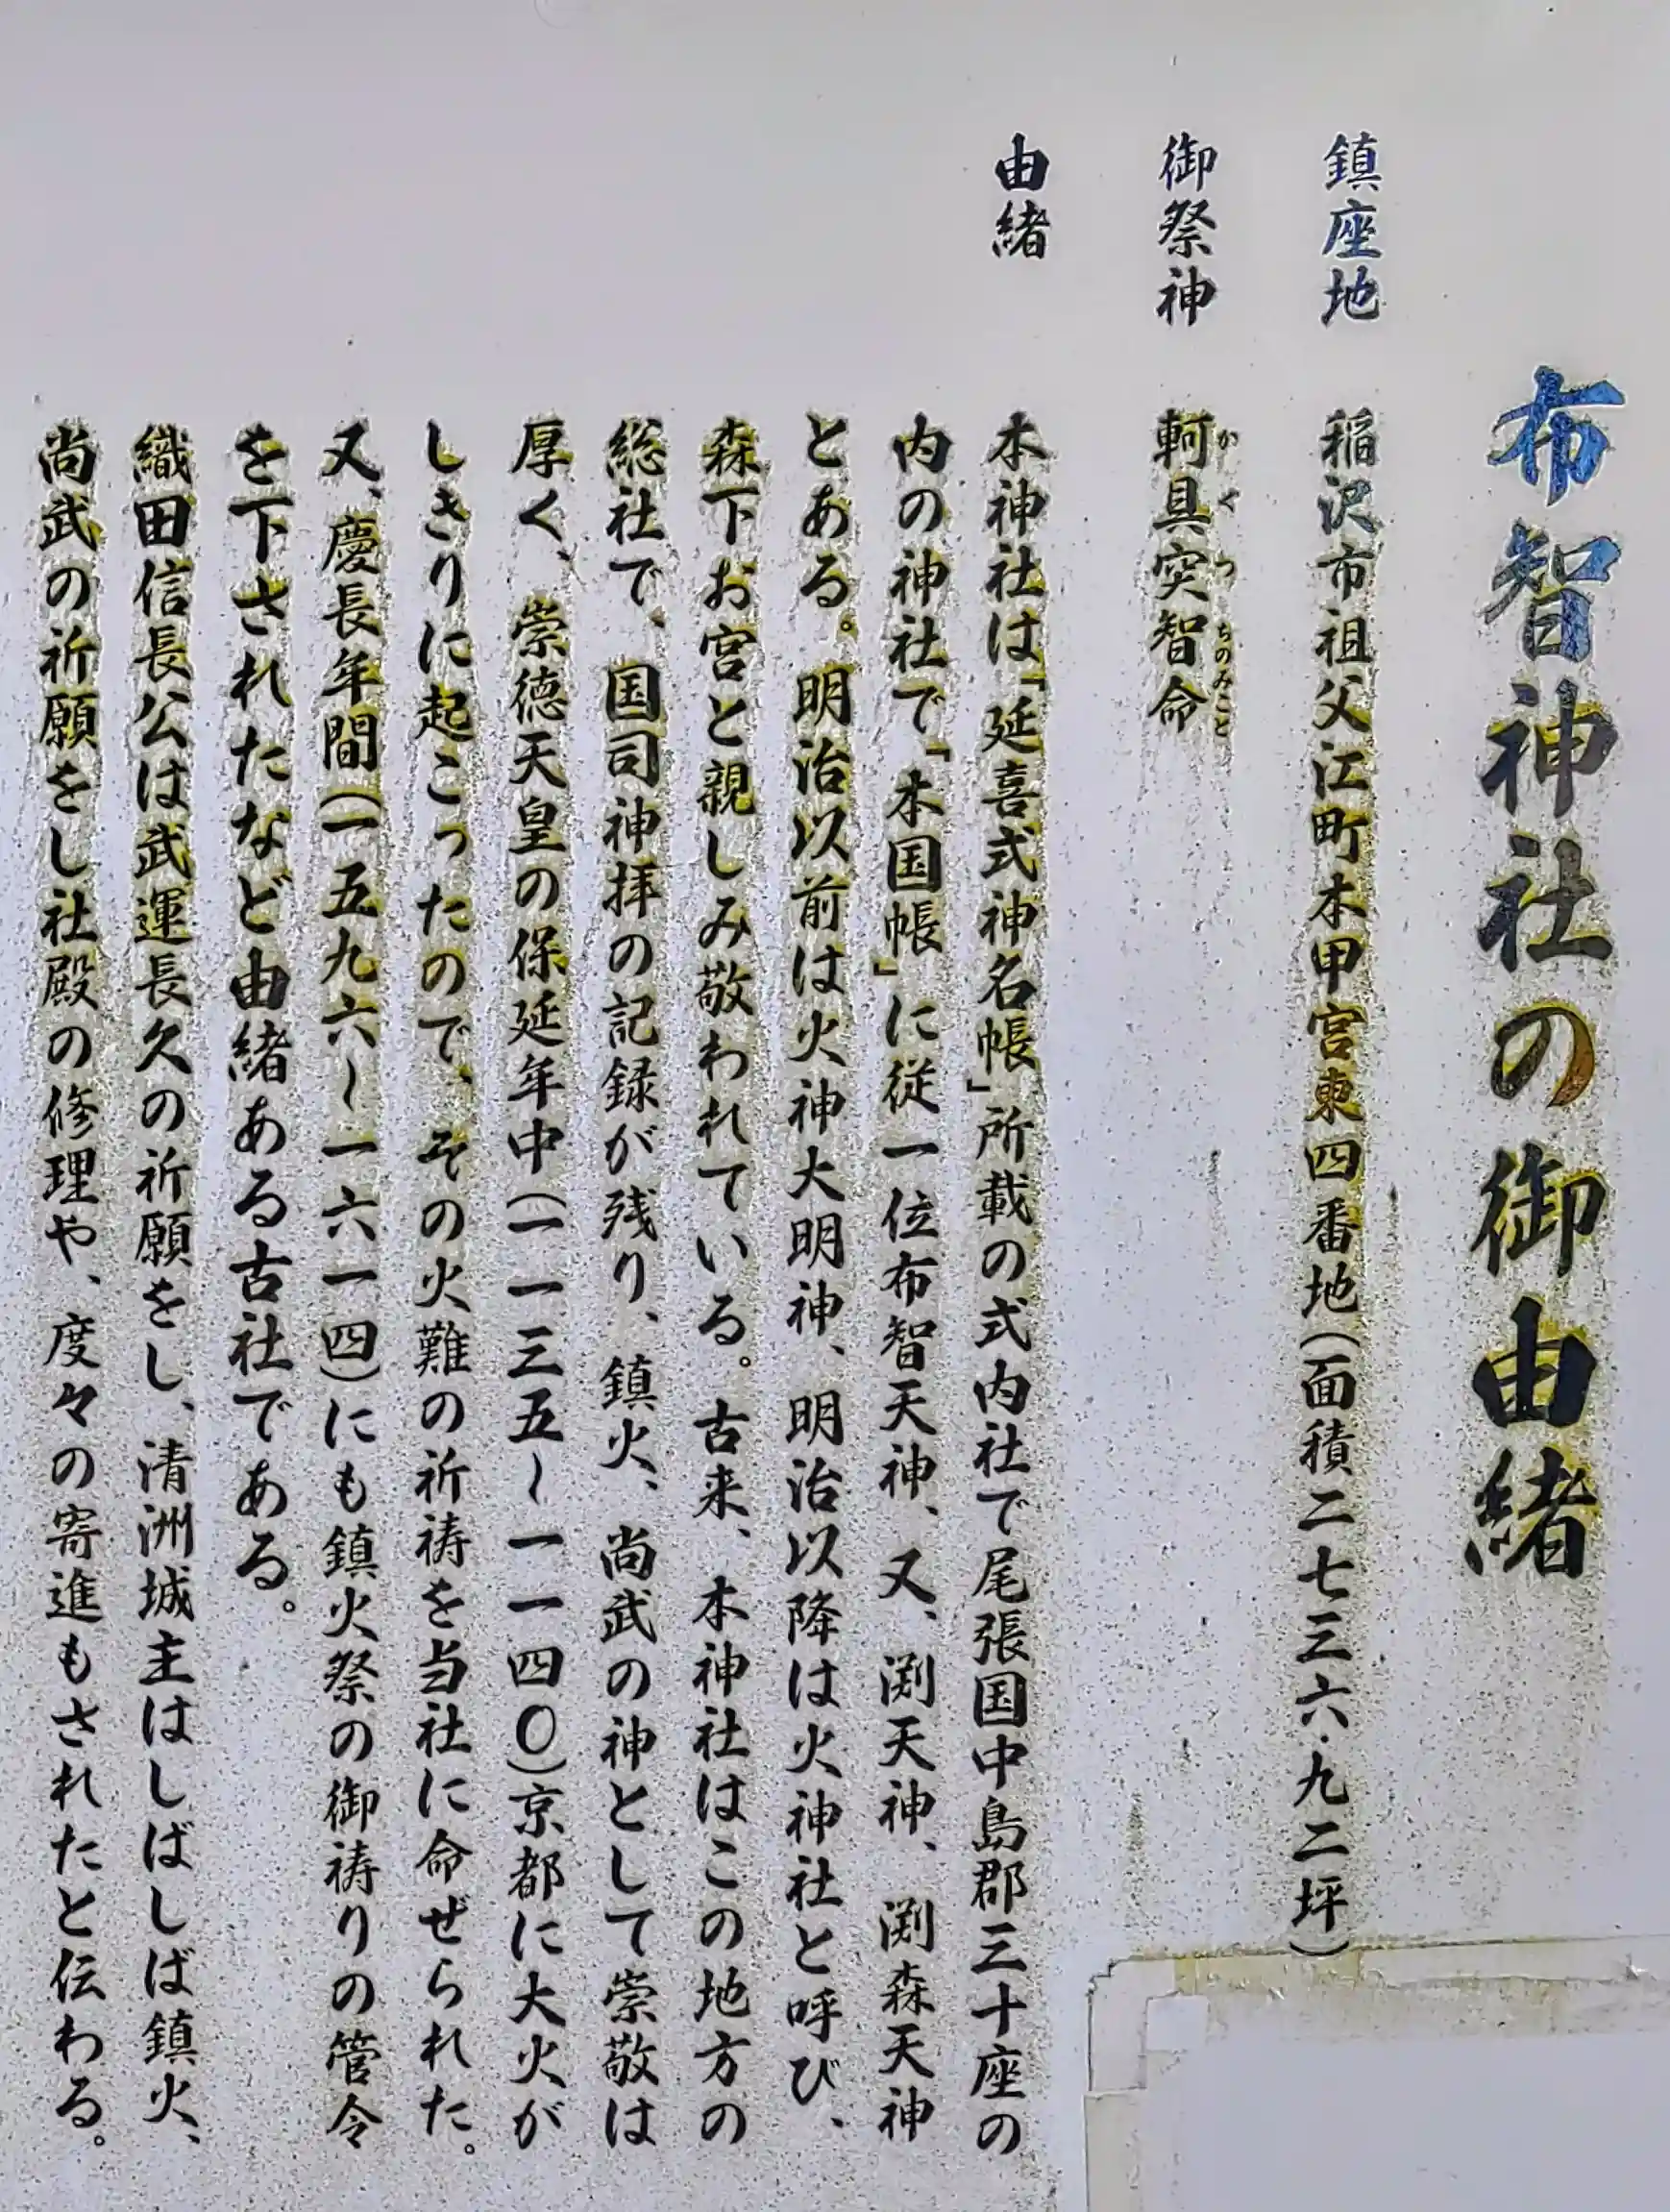 布智神社の御由緒
鎮座地　稲沢市祖父江町本甲宮東四番地(面積二七三六・九二坪)
御祭神　軻具突智命
かぐつちのみこと
由緒　本神社は「延喜式神名帳」所載の式内社で尾張国中島郡三十座の
内の神社で「本国帳」に従一位布智天神、又、渕天神、渕森天神
とある。明治以前は火神大明神、明治以降は火神社と呼び、
森下お宮と親しみ敬われている。古来、本神社はこの地方の
総社で、国司神拝の記録が残り、鎮火、尚武の神として崇敬は
厚く、崇徳天皇の保延年中(一一三五〜一一四〇)京都に大火が
しきりに起こったので、その火難の祈祷を当社に命ぜられた。
又、慶長年間(一五九六〜一六一四)にも鎮火祭の御祷りの管令
を下されたなど由緒ある古社である。
織田信長公は武運長久の祈願をし、清洲城主はしばしば鎮火、
尚武の祈願をし社殿の修理や、度々の寄進もされたと伝わる。